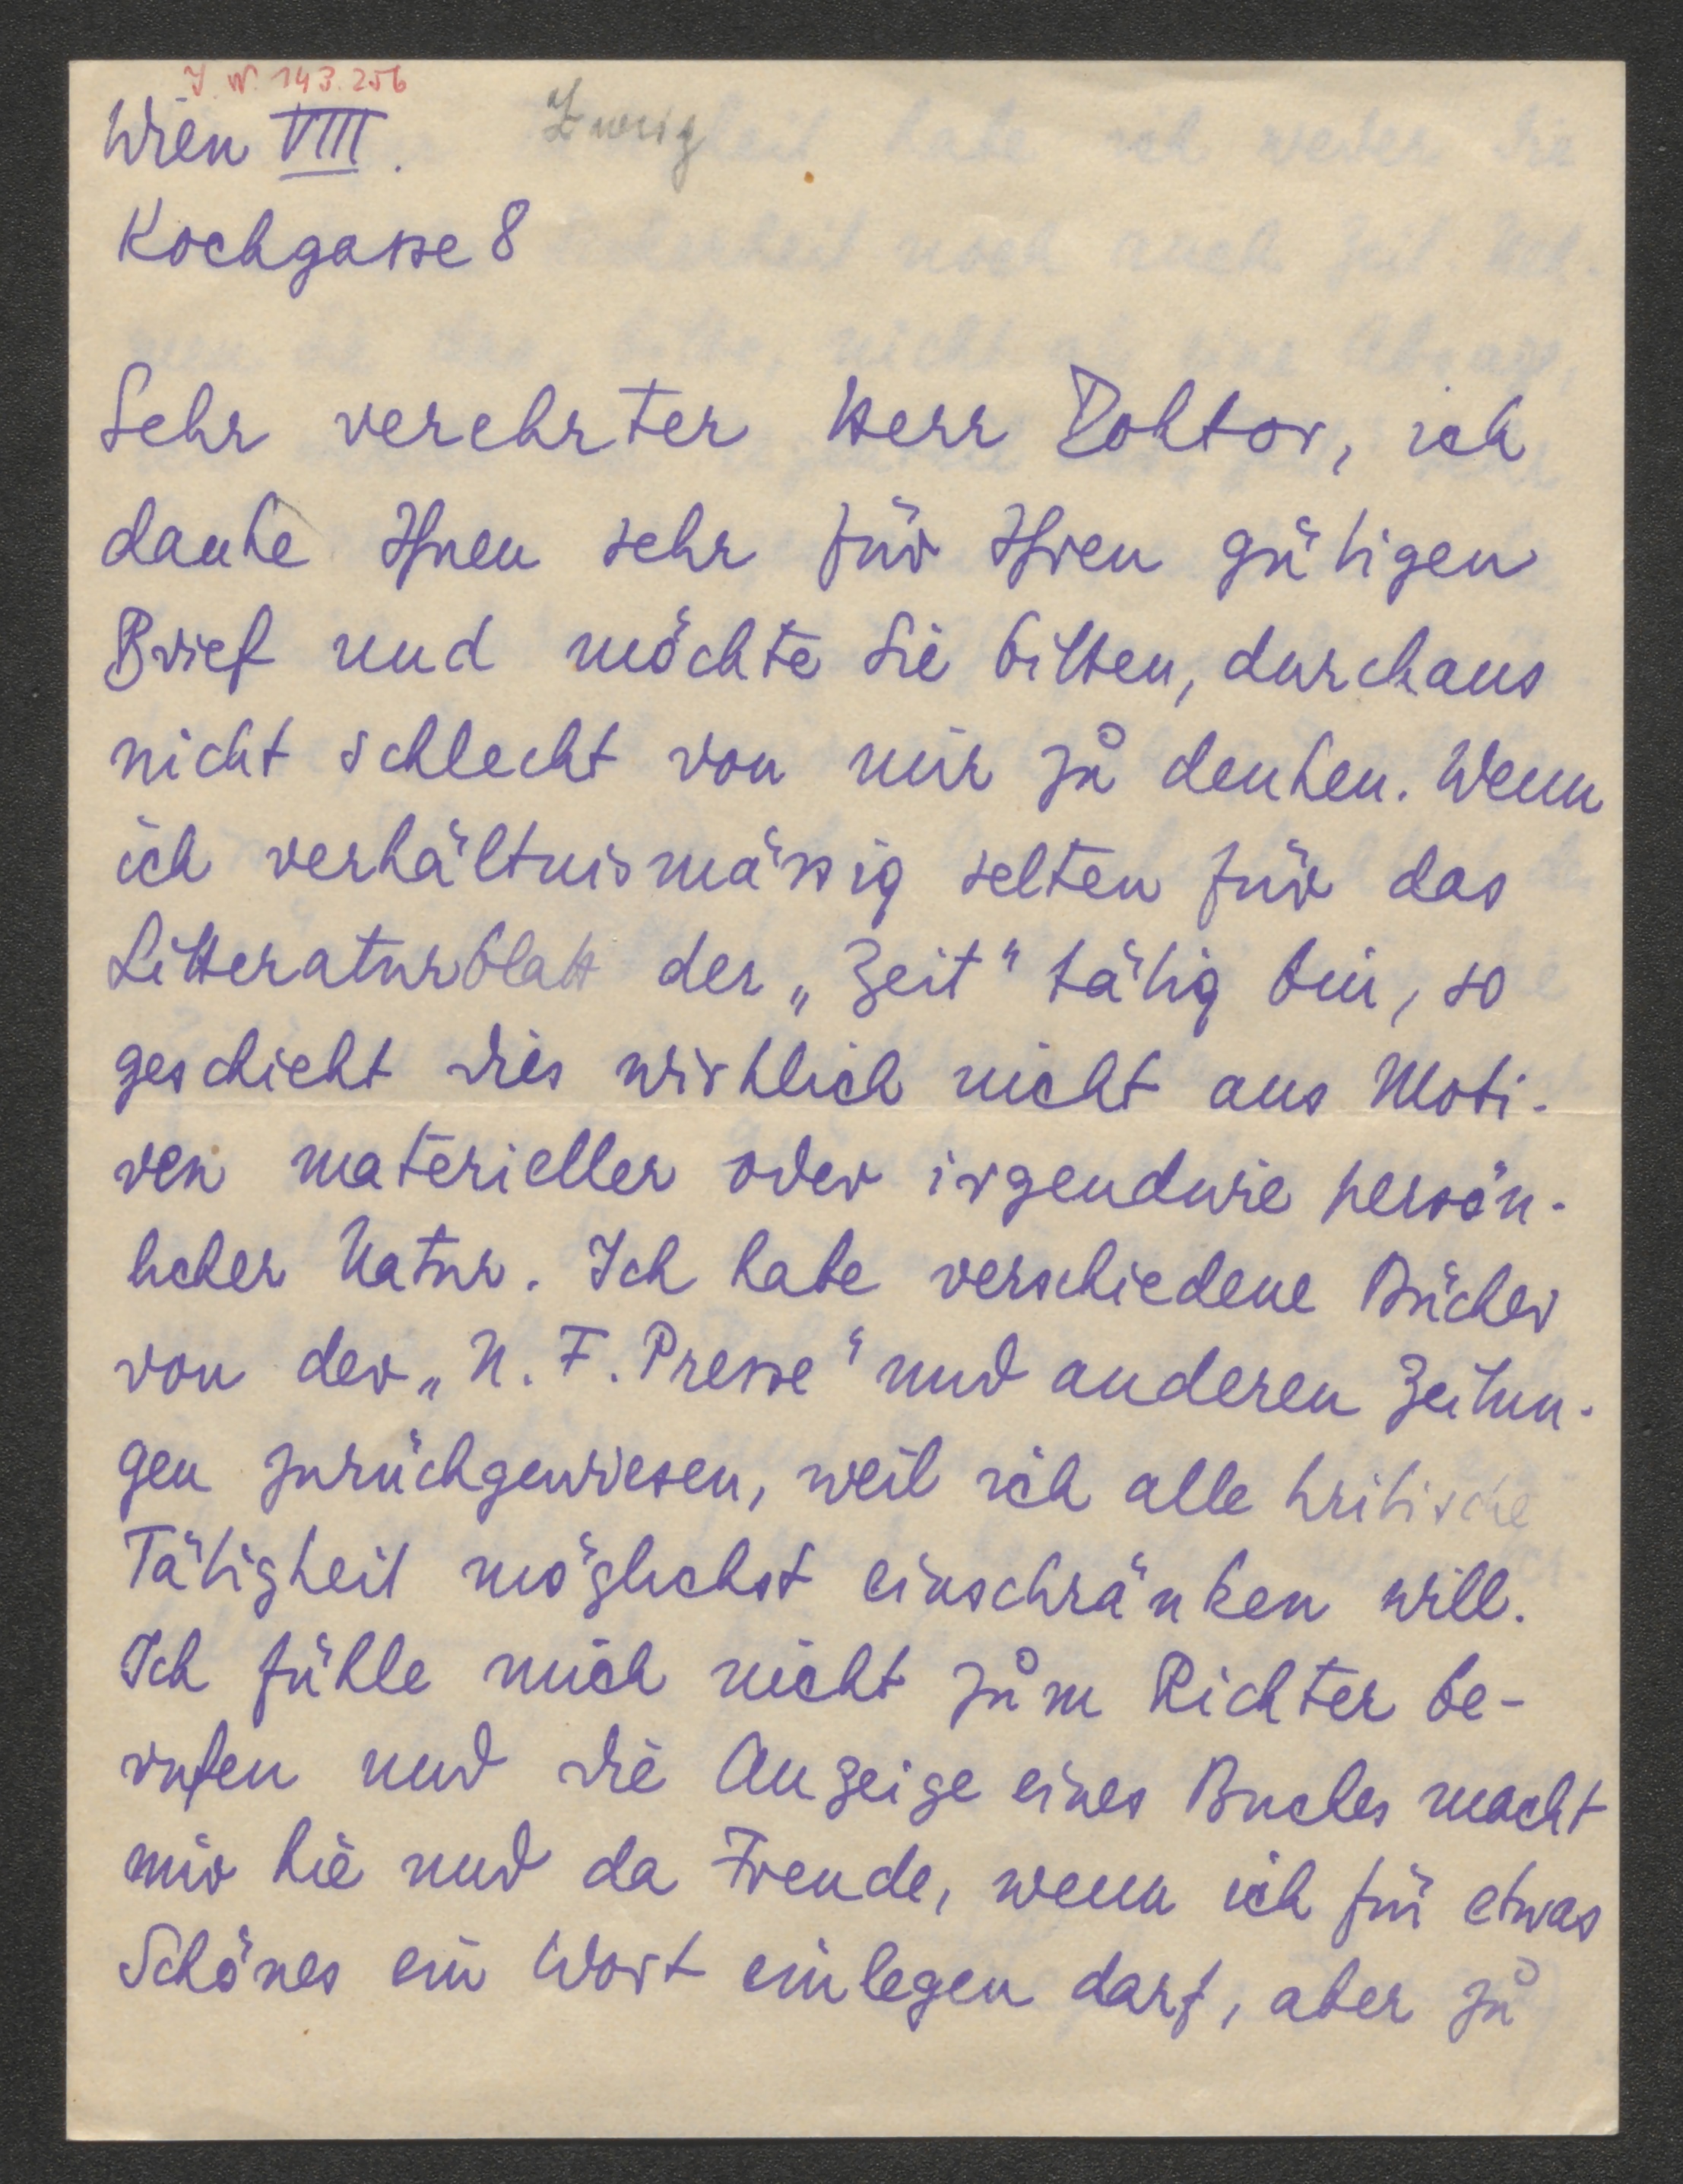 J. N. 143.256
Wien VIII. Zweig
Kochgasse 8
Sehr verehrter Herr Doktor, ich
danke Ihnen sehr für Ihren gütigen
Brief und möchte Sie bitten, durchaus
nicht schlecht von mir zu denken. Wenn
ich verhältnismässig selten für das
Litteraturblatt der „Zeit“ tätig bin, so
geschieht dies wirklich nicht aus Moti-
ven materieller oder irgendwie persön-
licher Natur. Ich habe verschiedene Bücher
von der „N. F. Presse“ und anderen Zeitun-
gen zurückgewiesen, weil ich alle kritische
Tätigkeit möglichst einschränken will.
Ich fühle mich nicht zum Richter be-
rufen und die Anzeige eines Buches macht
mir hie und da Freude, wenn ich für etwas
Schönes ein Wort einlegen darf, aber zu